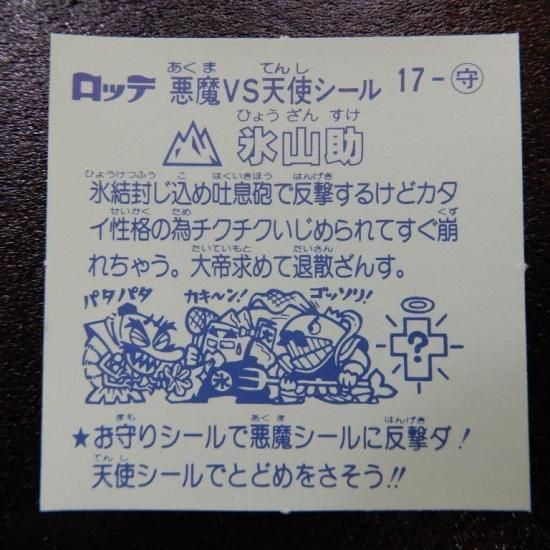 ロッテ 悪魔VS天使シール 17-守
あくま てんし
ひょうざんすけ
氷山助
ひょうけつふう こ はくいきほう はんげき
氷結封じ込め吐息砲で反撃するけどカタ
せいかく ため くず
イ性格の為チクチクいじめられてすぐ崩
たいていもと たいさん
れちゃう。大帝求めて退散ざんす。
パタパタ カキ〜ン! ゴッソリ!
氷 ?
まも あくま はんげき
★お守りシールで悪魔シールに反撃ダ!
てんし
天使シールでとどめをさそう!!